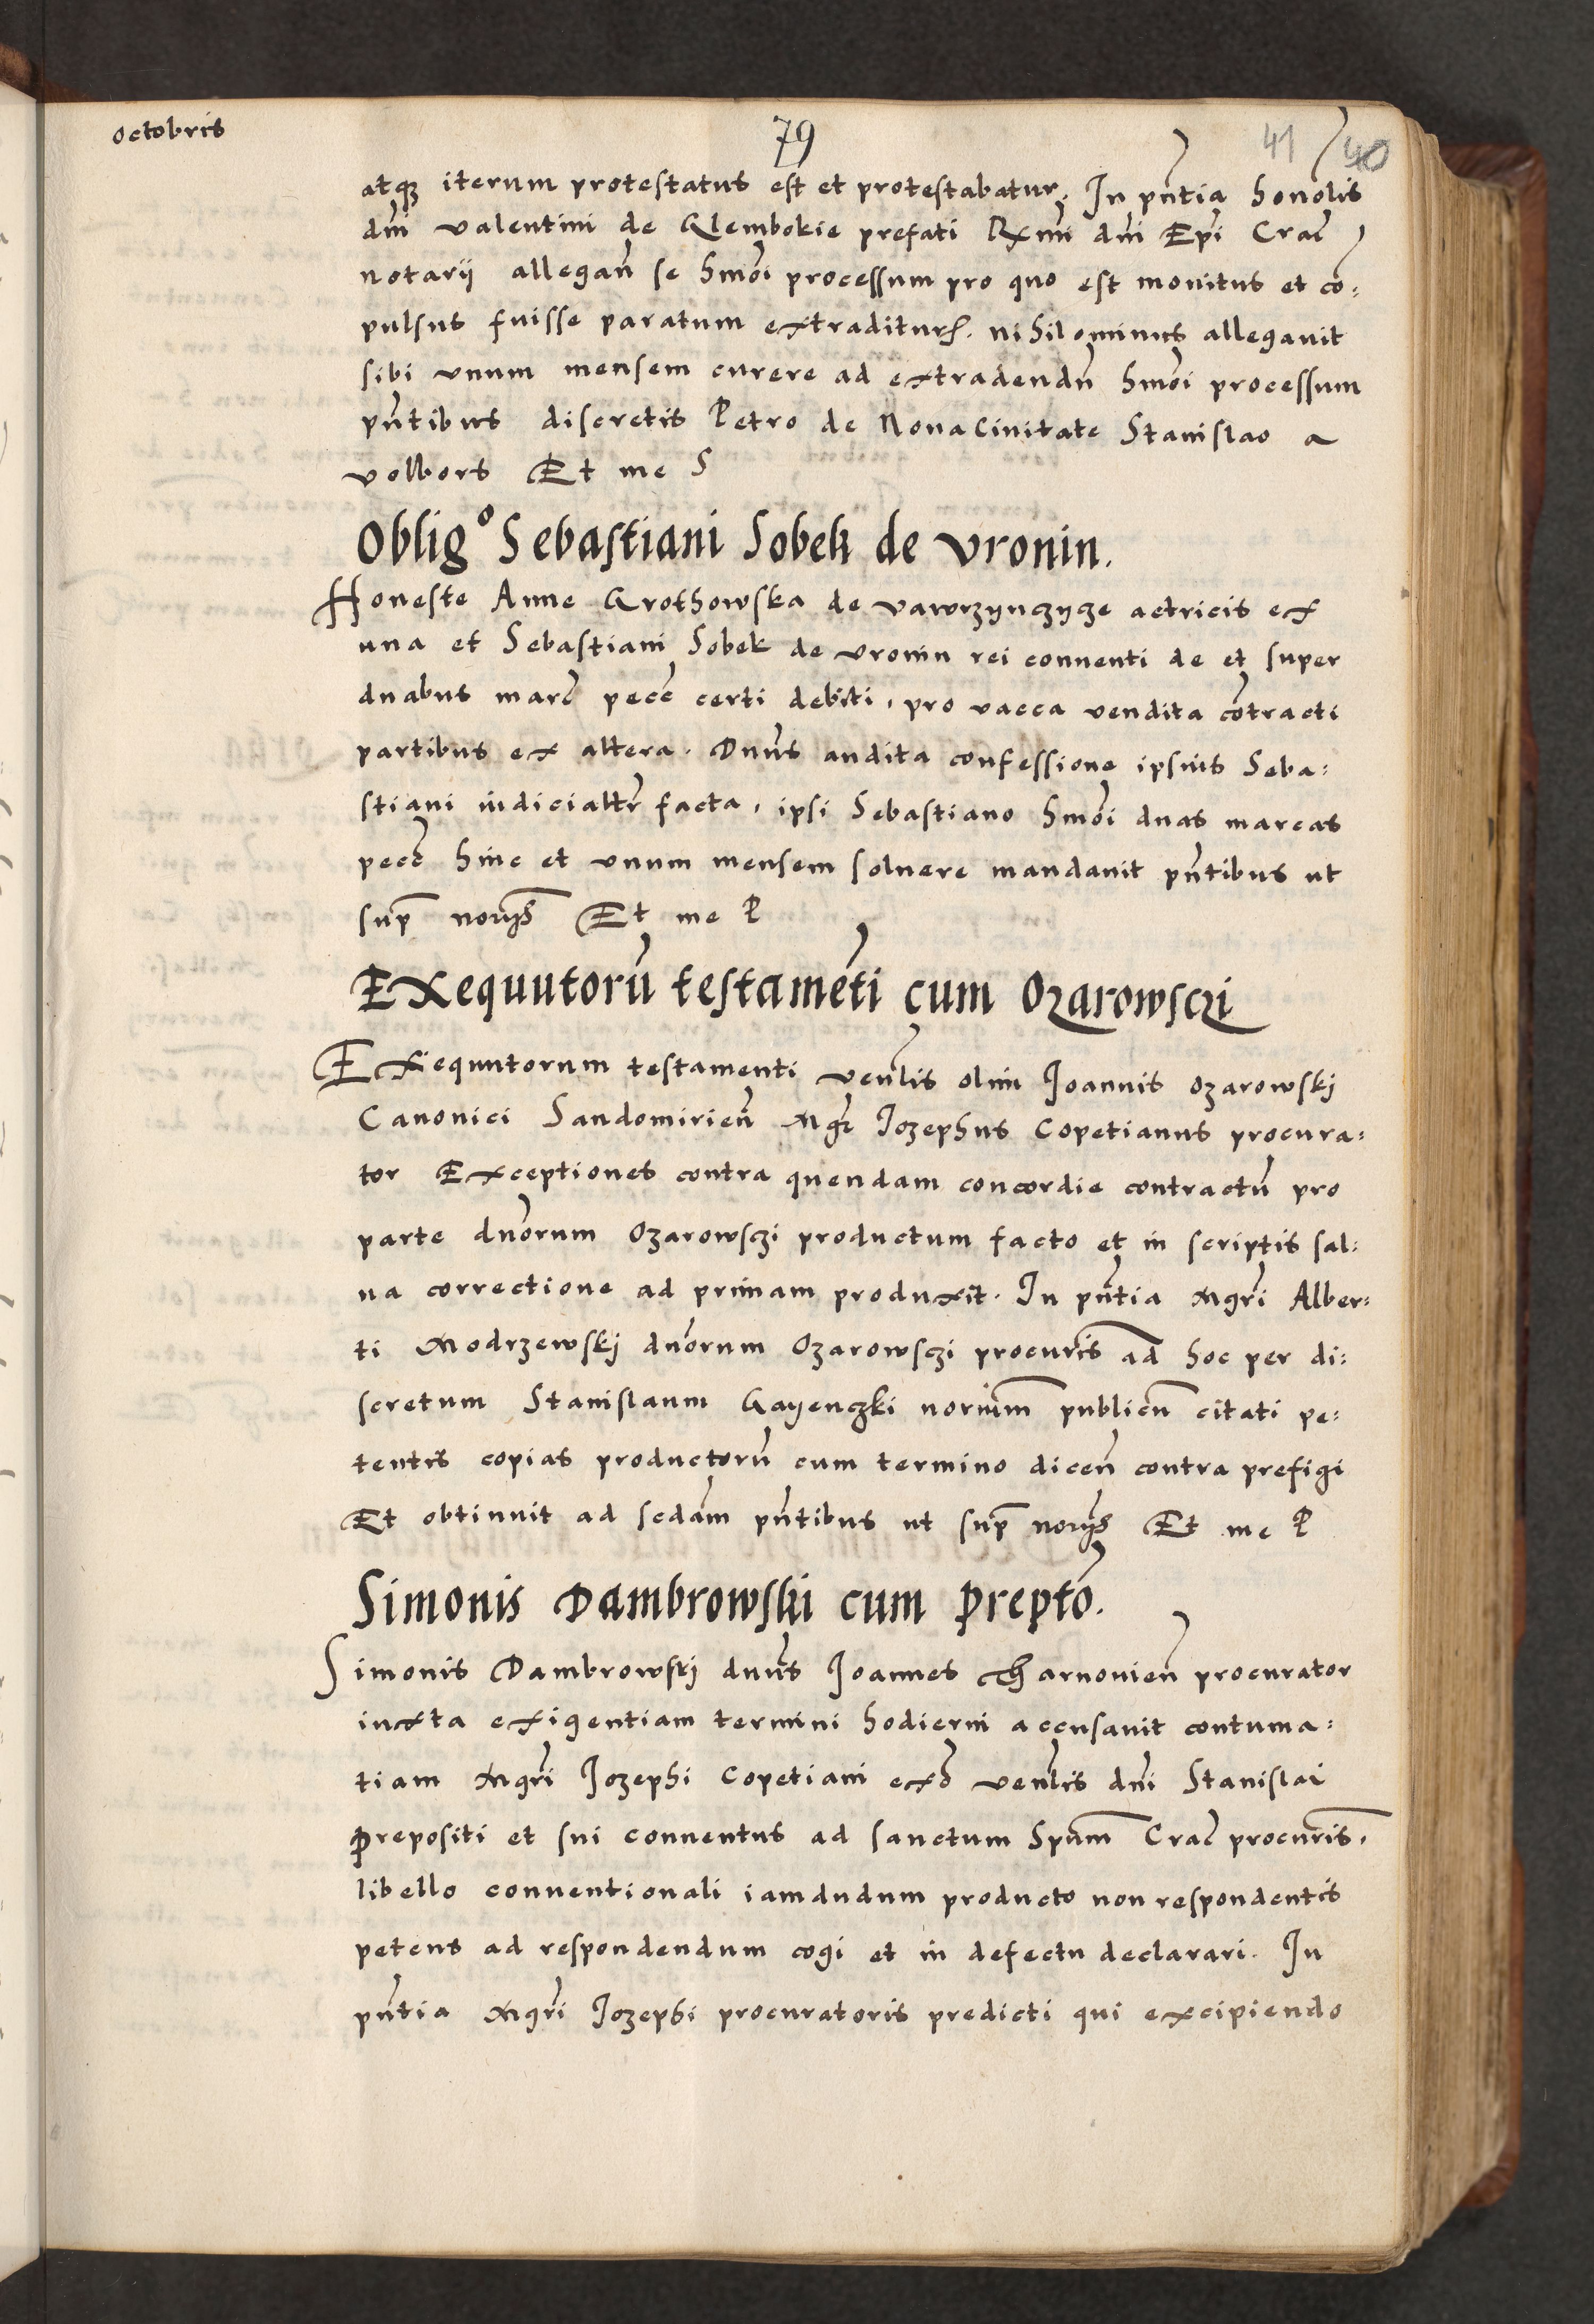 octobris
79
41 40
atqꝫ iterum protestatus est et protestabatur. In pn̄tia honolis
dn̄i valentini de Glembokie prefati Rxmi dn̄i Ep̄i Crac̄
notarij allegan̄ se hmōi processum pro quo est monitus et co:
pulsus fuisse paratum extraditur. nihilominus allegauit
sibi vnum mensem curere ad extradendū hmōi processum
pn̄tibus discretis Petro de Noua Ciuitate Stanislao a
volbors Et me S
Oblig° Sebastiani Sobek de vronin.
Honeste Anne Grothowska de vawrzynczycze actricis ex
una et Sebastiani Sobek de vronin rei conuenti de et super
duabus marc̄ pecc̄ certi debiti, pro vacca vendita cōtracti
partibus ex altera. Dnūs audita confessione ipsius Seba:
stiani iudicialtr̄ facta, ipsi Sebastiano hmōi duas marcas
pecc̄ hinc et vnum mensem soluere mandauit pn̄tibus ut
sup̄ norijs Et me P
Exequutorū testamēti cum Ozarowsczi
Exequutorum testamenti venlis olim Joannis ozarowskj
Canonici Sandomirien̄ Mgr̄ Jozephus Copetianus procura:
tor Exceptiones contra quendam concordie contractū pro
parte dnorum Ozarowsczi productum facto et in scriptis sal:
ua correctione ad primam produxit. In pn̄tia Mgrī Alber:
ti Modrzewskj dnorum Ozarowsczi procuris ad hoc per di:
scretum Stanislaum Gayenczki norium publicū citati pe:
tentis copias productorū cum termino dicen̄ contra prefigi
Et obtinuit ad sedam pn̄tibus ut sup̄ norijs Et me P
Simonis Dambrowski cum preptō.
Simonis Dambrowskj dnūs Joannes Tharnouien̄ procurator
iuxta exigentiam termini hodierni accusauit contuma:
tiam Mgrī Jozephi Copetiani exō venlis dn̄i Stanislai
prepositi et sui conuentus ad sanctum Spum̄ Crac̄ procuris,
libello conuentionali iamdudum producto non respondentis
petens ad respondendum cogi et in defectu declarari. In
pn̄tia Mgrī Jozephi procuratoris predicti qui excipiendo